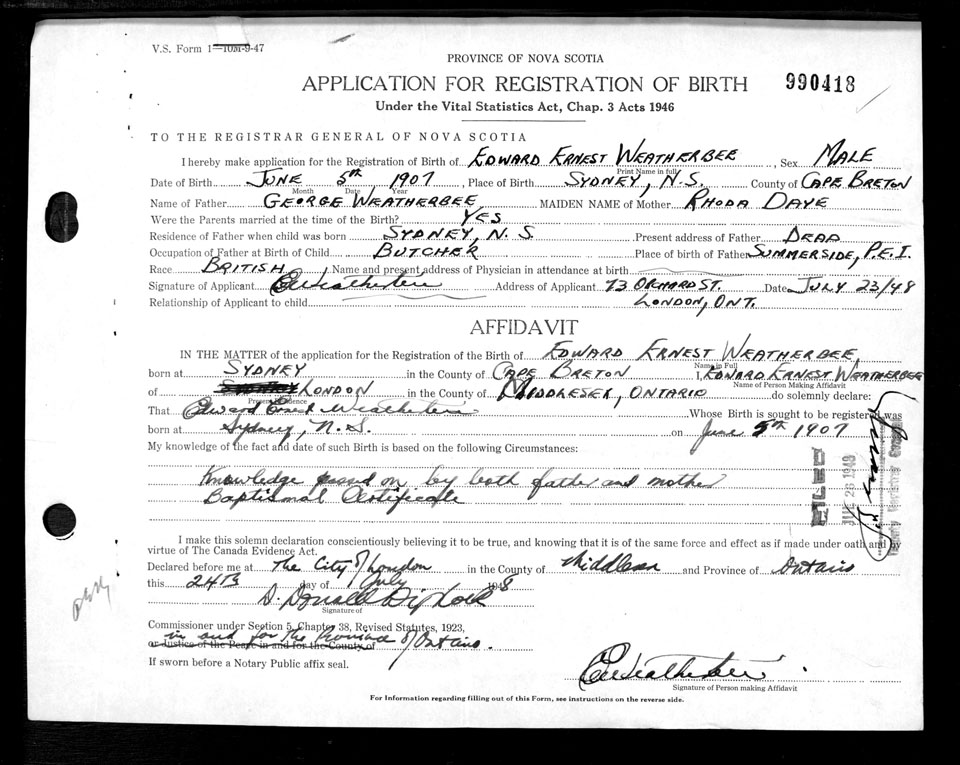 V.S. Form 1—10M-9-47
PROVINCE OF NOVA SCOTIA
APPLICATION FOR REGISTRATION OF BIRTH 990418
Under the Vital Statistics Act, Chap. 3 Acts 1946
TO THE REGISTRAR GENERAL OF NOVA SCOTIA
I hereby make application for the Registration of Birth of EDWARD ERNEST WEATHERBEE, Sex MALE
Print Name in full
Date of Birth JUNE 5th 1907, Place of Birth SYDNEY, N.S. County of CAPE BRETON
Month Date Year
Name of Father GEORGE WEATHERBEE MAIDEN NAME of Mother RHODA DAYE
Were the Parents married at the time of the Birth? YES
Residence of Father when child was born SYDNEY, N.S. Present address of Father DEAD
Occupation of Father at Birth of Child BUTCHER Place of birth of Father SUMMERSIDE, P.E.I.
Race BRITISH, Name and present address of Physician in attendance at birth
Signature of Applicant E Weatherbee Address of Applicant 73 ORCHARD ST. Date JULY 23/48
Relationship of Applicant to child LONDON, ONT.
AFFIDAVIT
IN THE MATTER of the application for the Registration of the Birth of EDWARD ERNEST WEATHERBEE,
Name in Full
born at SYDNEY in the County of CAPE BRETON I, EDWARD ERNEST WEATHERBEE
Name of Person Making Affidavit
of LONDON in the County of MIDDLESEX, ONTARIO do solemnly declare:
Present Residence
That Edward Ernest Weatherbee Whose Birth is sought to be registered was
born at Sydney, N.S. on June 5th 1907
My knowledge of the fact and date of such Birth is based on the following Circumstances:
Knowledge passed on by both father and mother
Baptismal Certificate
FILED
I make this solemn declaration conscientiously believing it to be true, and knowing that it is of the same force and effect as if made under oath and by
virtue of The Canada Evidence Act.
Declared before me at The City of London in the County of Middlesex and Province of Ontario
this 24th day of July 1948
Signature of
Commissioner under Section 5, Chapter 38, Revised Statutes, 1923,
in and for the Province of Ontario.
or Justice of the Peace in and for the County of
If sworn before a Notary Public affix seal.
E Weatherbee
Signature of Person making Affidavit
For Information regarding filling out of this Form, see instructions on the reverse side.